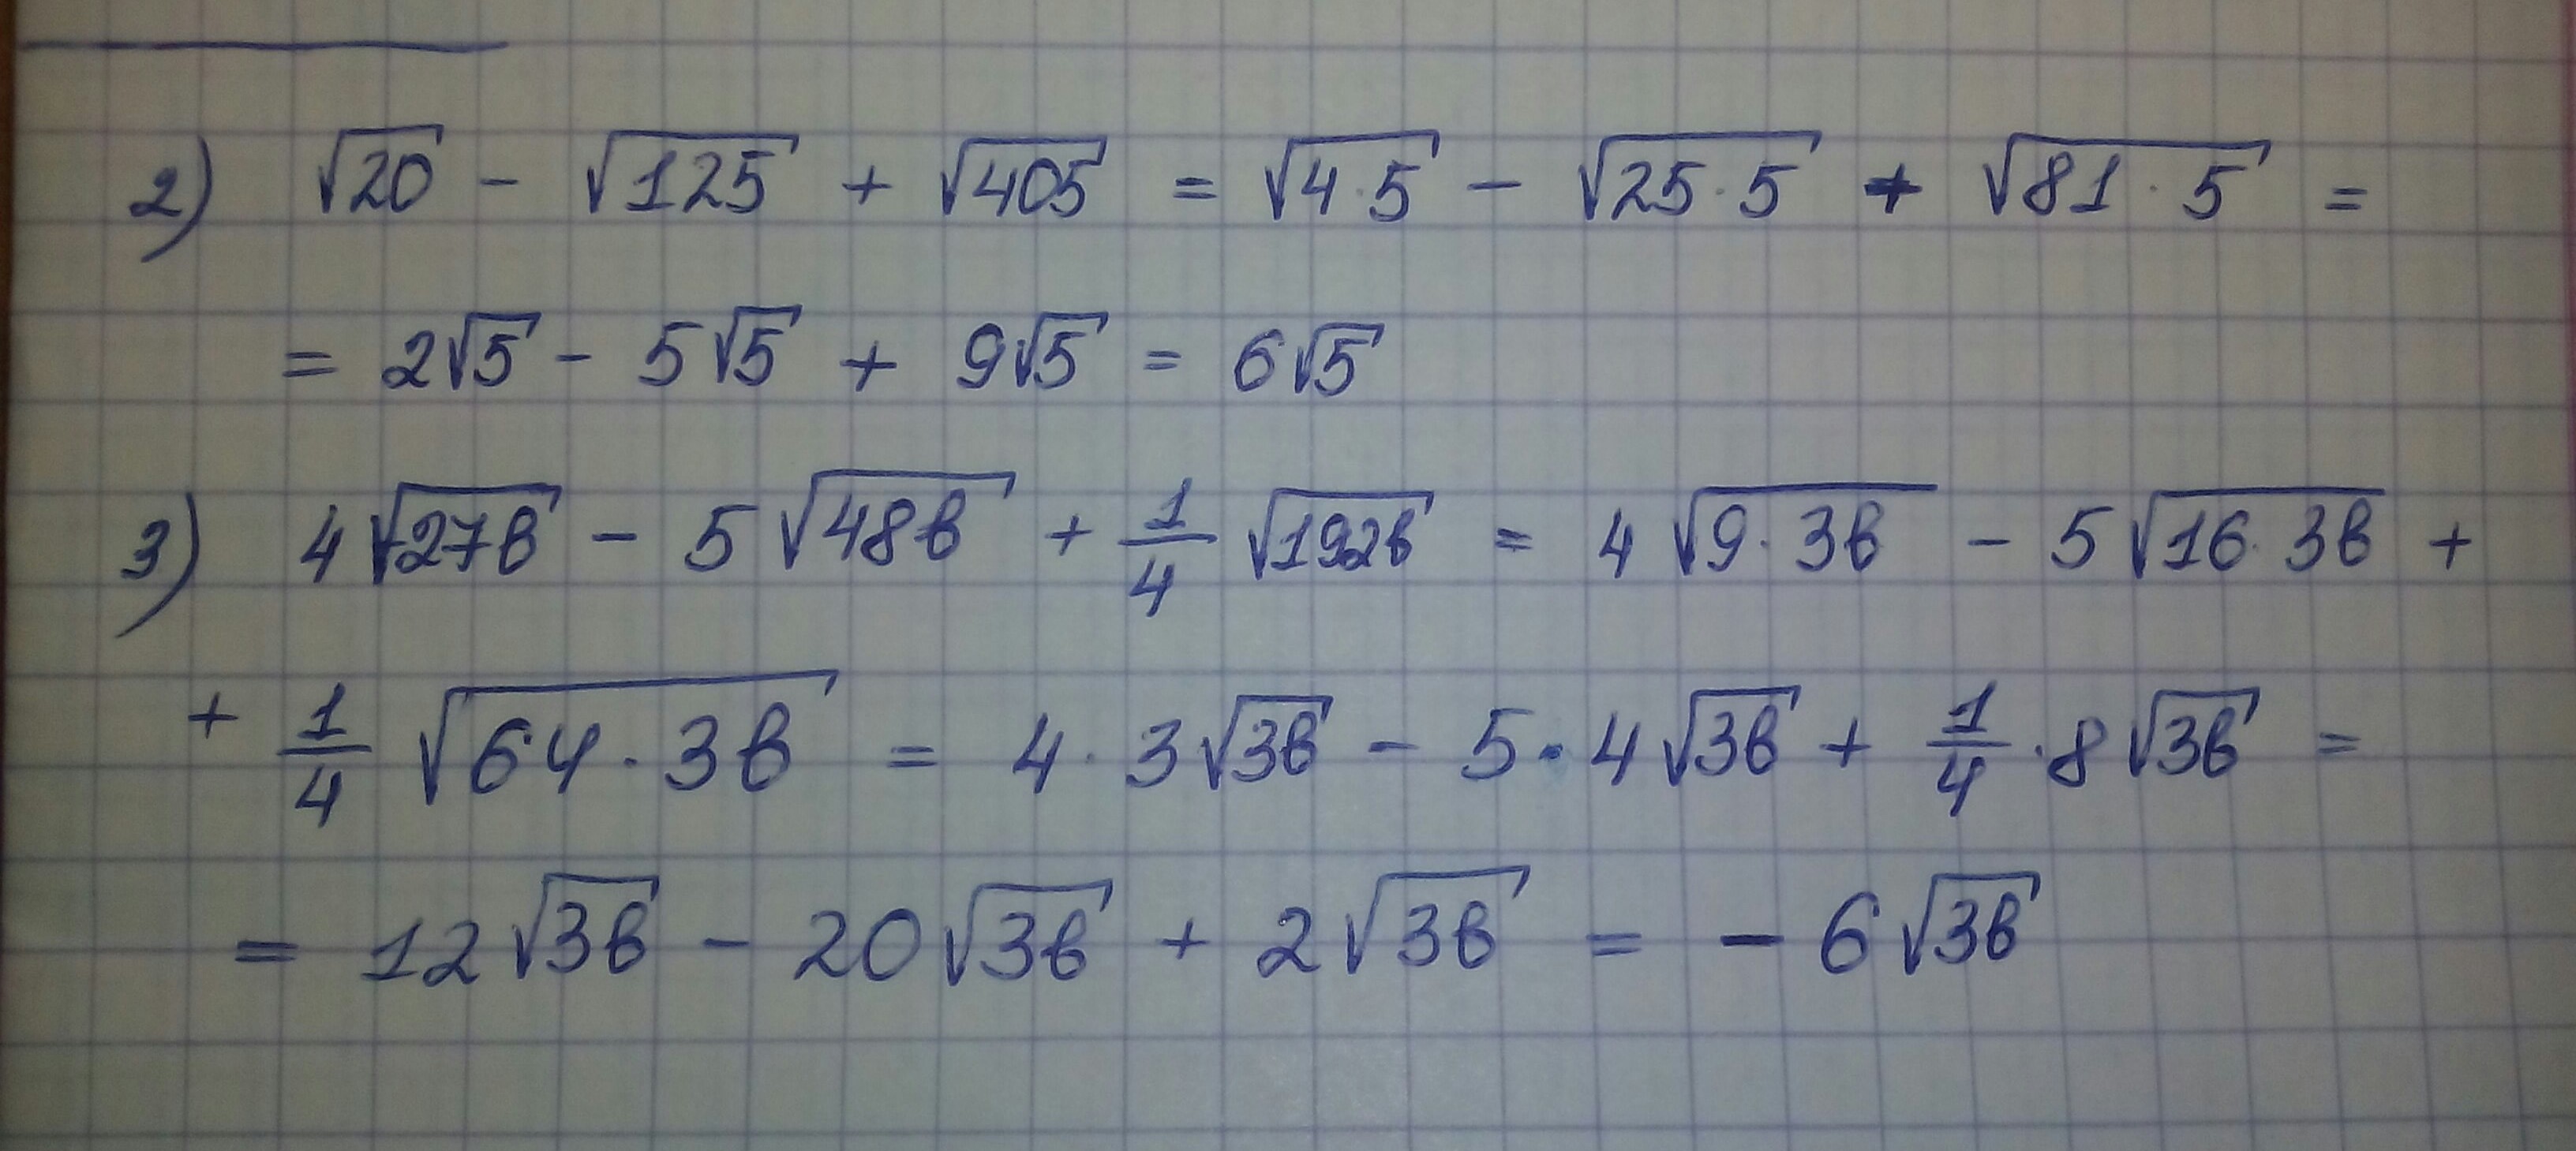 2) √20 - √125 + √405 = √4·5 - √25·5 + √81·5 =
= 2√5 - 5√5 + 9√5 = 6√5
3) 4√27в - 5√48в + 1/4 √192в = 4√9·3в - 5√16·3в +
+ 1/4 √64·3в = 4·3√3в - 5·4√3в + 1/4·8√3в =
= 12√3в - 20√3в + 2√3в = -6√3в